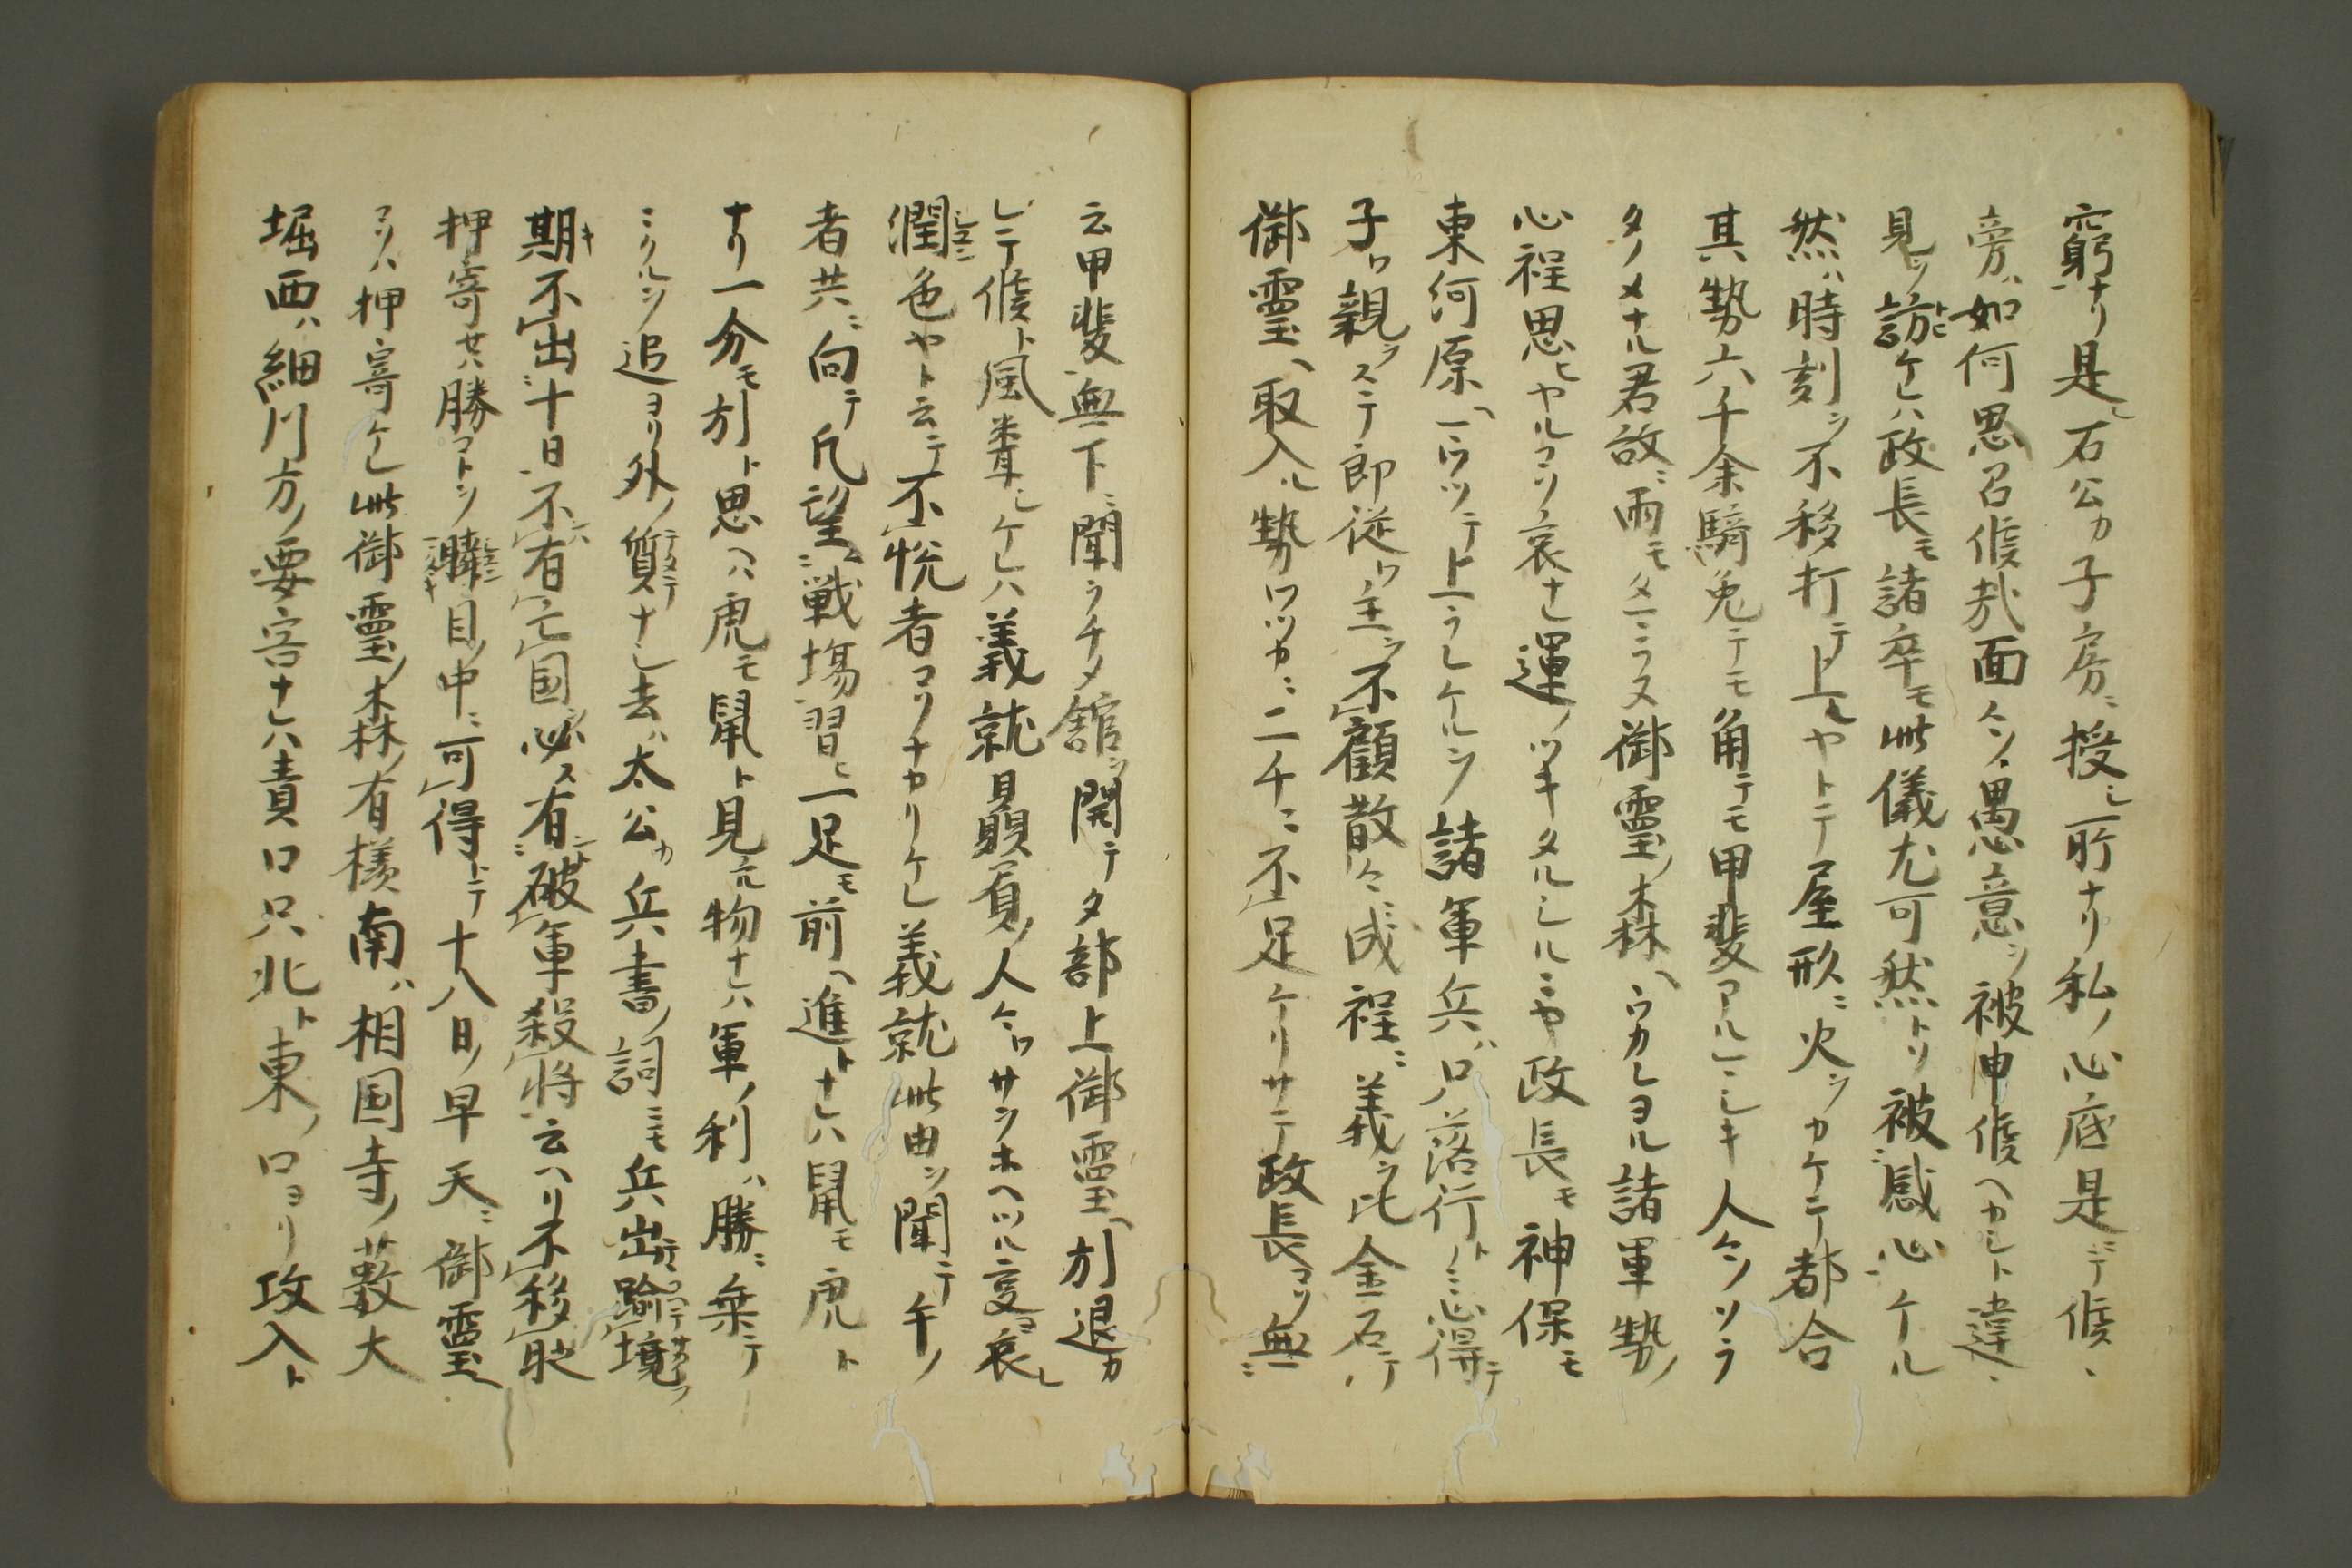 窮ナリ是レ石公カ子房ニ授シ所ナリ私ノ心底是ニテ候、
旁ハ如何思召候哉面々ノ愚意ヲ被申候ヘカシト違、
見ヲ訪ケレハ政長モ諸卒モ此儀尤可然トソ被感心ケル
然ハ時刻ヲ不移打テ上レヤトテ屋形ニ火ヲカケテ都合
其勢六千余騎兎テモ角テモ甲斐アルマシキ人々ソラ
タノメナル君故ニ雨モタマラヌ御霊ノ森ヘウカレヨル諸軍勢ノ
心程思ヒヤルコソ哀ナレ運ノツキタルシルニヤ政長モ神保モ
東河原ヘウツテ上ラレケルヲ諸軍兵ハ只落行トノミ心得テ
子ハ親ヲステ郎従ハ主ヲ不顧散々ニ成程ニ義ヲ比金石テ
御霊ヘ取入ル勢ワツカニ二千ニ不足ケリサテ政長コソ無ニ
云甲斐無下ニ聞ヲチメ舘ヲ開テタ部上御霊ヘ引退カ
レテ候ト風聾シケレハ義就贔屓ノ人々ハサシホヘツル夏哀レ
潤色ヤト云テ不悦者コソナカリケレ義就此由ヲ聞テ午ノ
者共ニ向テ凡望ニ戦場習ヒ一足モ前ヘ進トナレハ鼠モ虎ト
ナリ一分モ引ト思ヘハ虎モ鼠ト見ル物ナレハ軍ノ利ハ勝ニ乗テ
ニクルヲ追ヨリ外ノ質ナシ去ハ太公カ兵書ノ詞ニモ兵出踰境
期不出十日不有亡国必ス有破軍殺将云ヘリ不移時
押寄せハ勝コトヲ瞬目ノ中ニ可得トテ十八日ノ早天ニ御霊ヘ
コソハ押寄ケレ此御霊ノ森ノ有様南ハ相国寺ノ藪大
堀西ハ細川方ノ要害ナレハ責口只北ト東ノ口ヨリ攻入ト